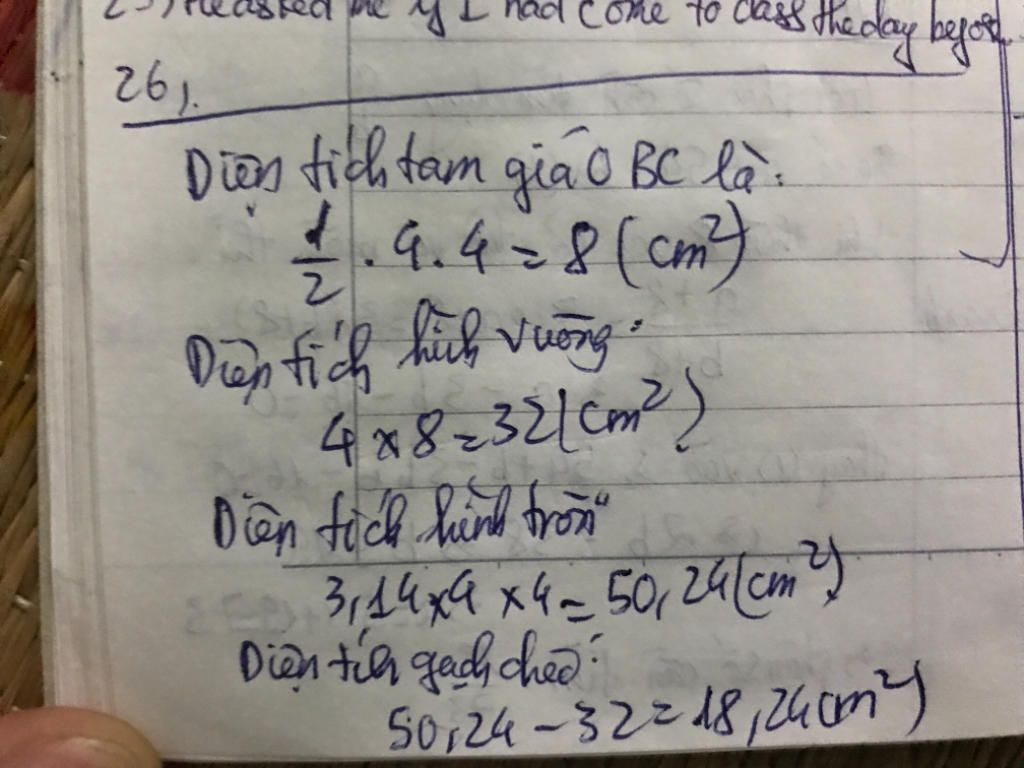 25, He asked me if I had come to class the day before.
26,.
Diện tích tam giác OBC là:
1/2 . 4 . 4 = 8 (cm²)
Diện tích hình vuông:
4 x 8 = 32 (cm²)
Diện tích hình tròn
3,14 x 4 x 4 = 50,24 (cm²)
Diện tích gạch chéo:
50,24 - 32 = 18,24 cm²)